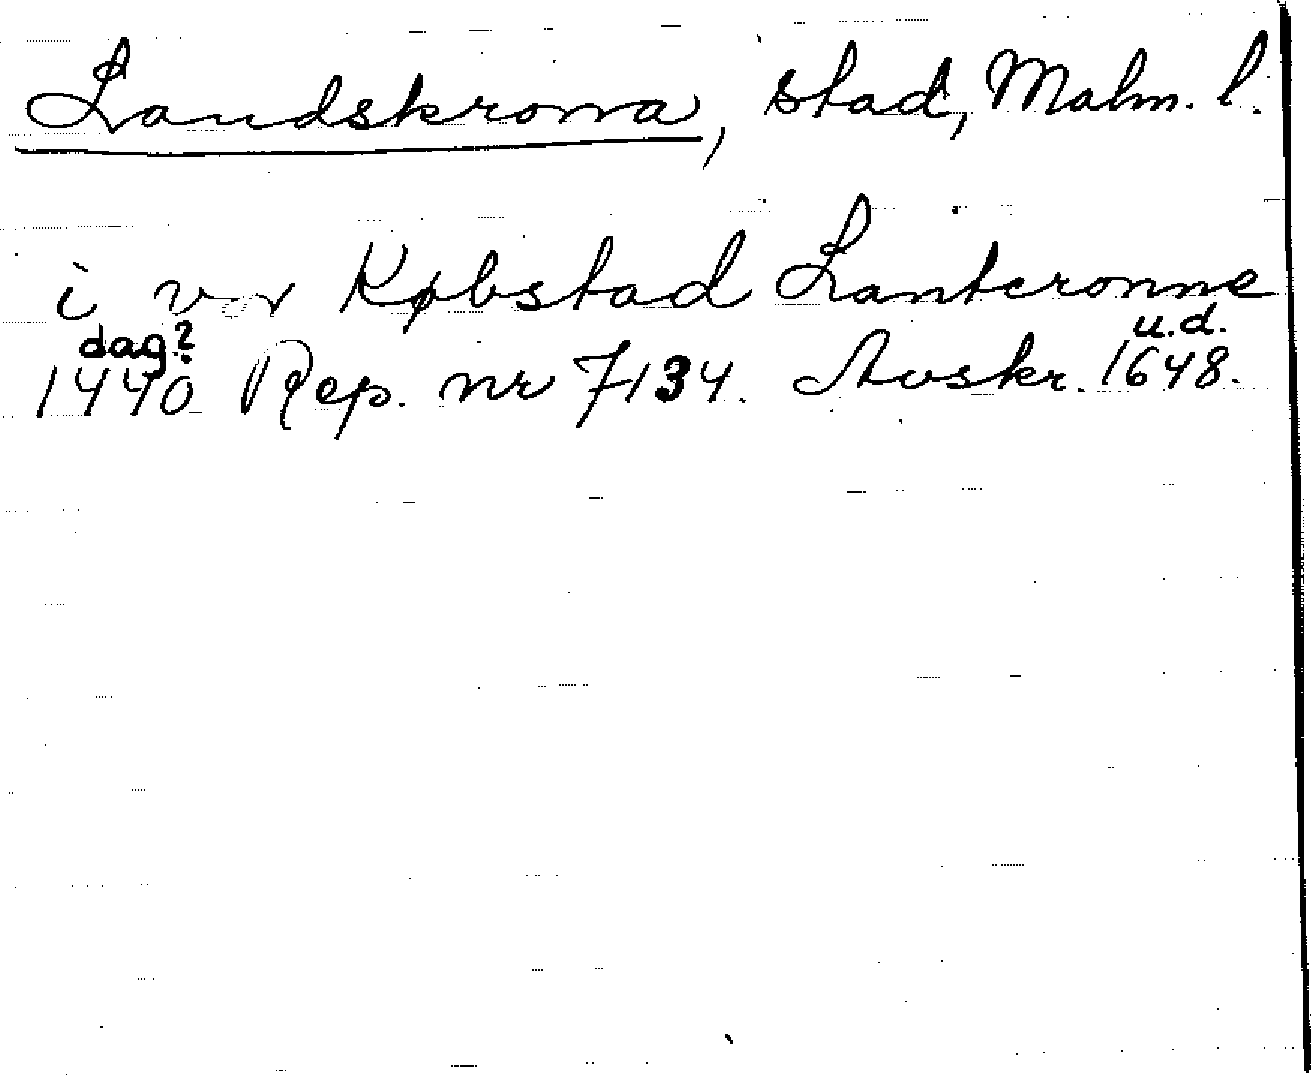 Landskrona, stad, Malm. l.
i vor Købstad Lantcronne
dag? u.d.
1440 Rep. nr 7134. Avskr. 1648.